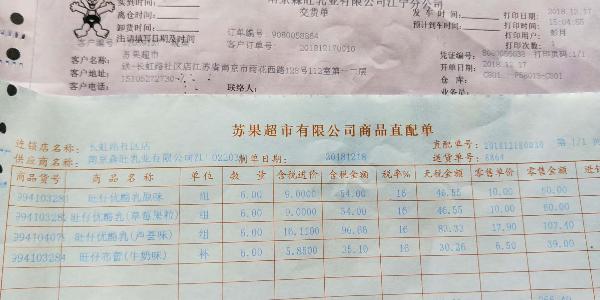 南京森旺乳业有限公司江宁分公司
交货单
实到时间:
离仓时间:
卸货时间:
注:请填写日期及时间
发车时间:
预计到车时间:
打印日期: 2018.12.17
打印时间: 15:04:55
打印用户: 彭月
订单编号: 9080058864
客户订单编号: 201812170010
客户编号:
客户名称: 苏果超市
客户地址: 长虹路社区店江苏省南京市雨花西路128号112室第一一层
客户电话: 15105272730
联系人:
凭证编号:
打印页码: 1/1
开单日期: 2018.12.17
仓库:
业务员:
苏果超市有限公司商品直配单
连锁店名称: 长虹路社区店
直配单号: 201812180010 第 1/1 页
供应商名称: 南京森旺乳业有限公司江 02203
制单日期: 20181218
送货单号: 8864
商品货号 商品名称 单位 数量 含税进价 含税金额 税率% 无税金额 零售单价 零售金额
994103280 旺仔优酪乳原味 组 6.00 9.0000 54.00 16 46.55 10.00 60.00
994103282 旺仔优酪乳(草莓果粒) 组 6.00 9.0000 54.00 16 46.55 10.00 60.00
994104079 旺仔优酪乳(芦荟味) 组 6.00 16.1100 96.66 16 83.33 17.90 107.40
994103284 旺仔布蕾(牛奶味) 杯 6.00 5.8500 35.10 16 30.26 6.50 39.00